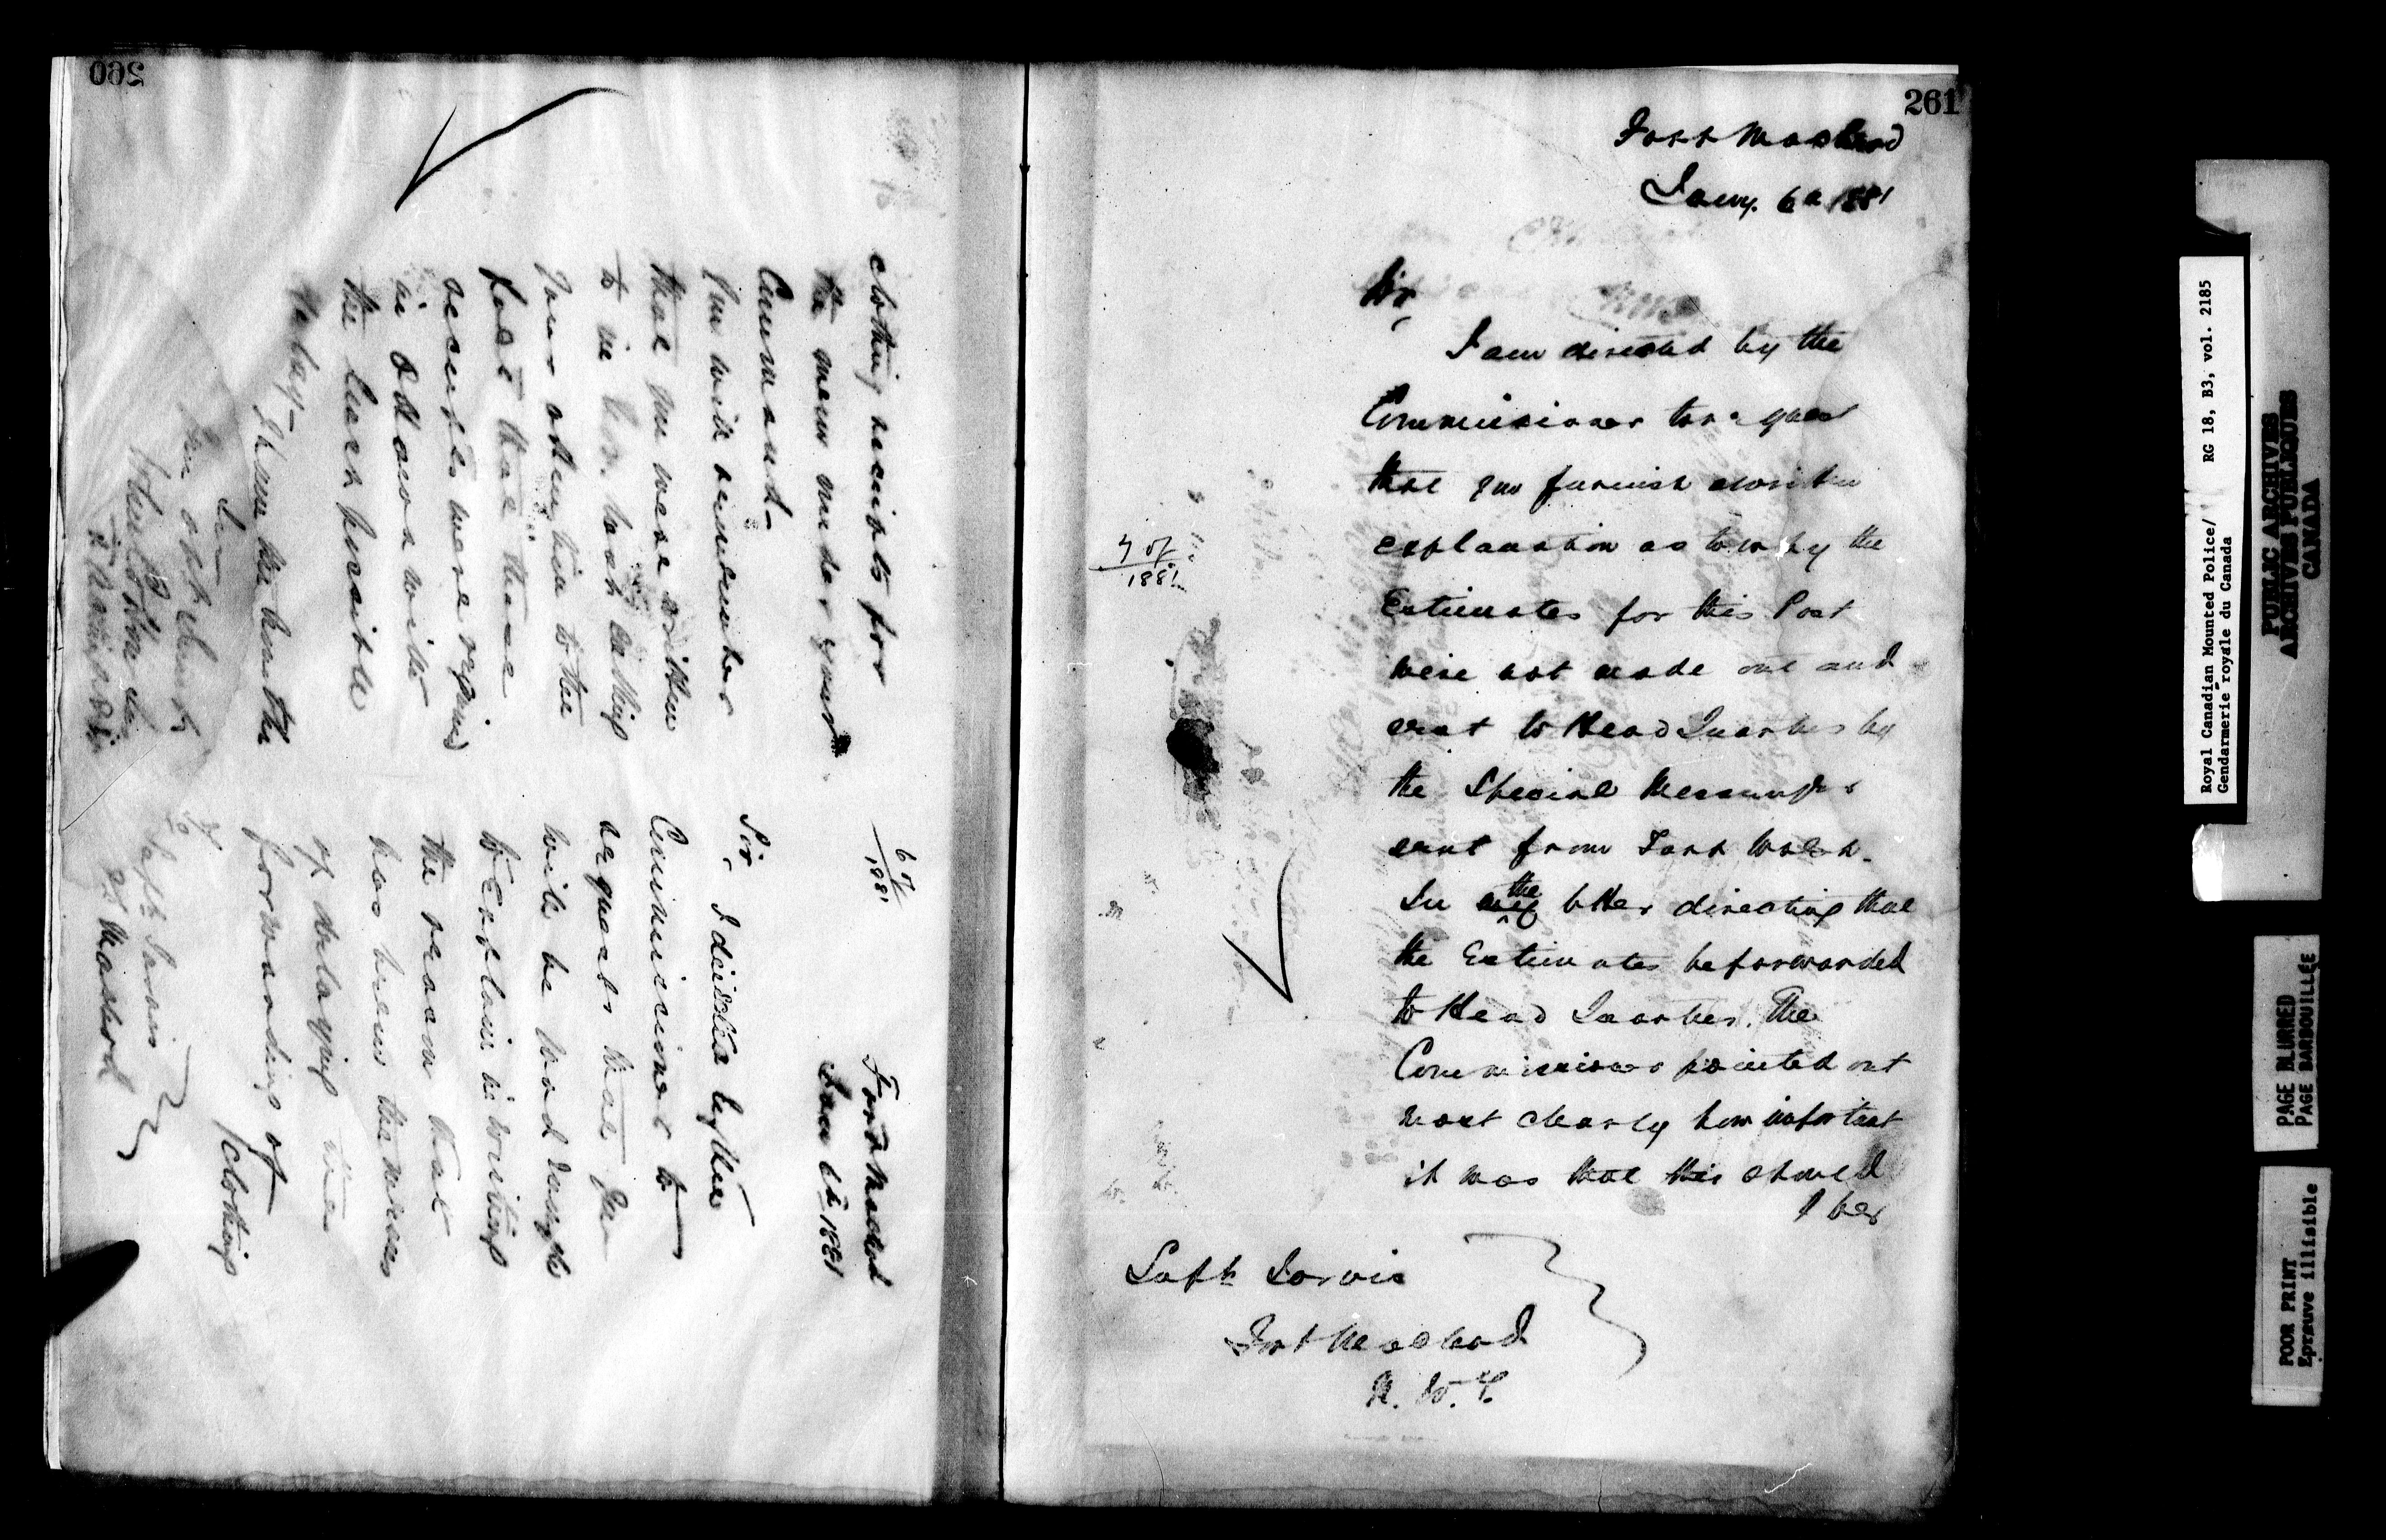 260
6 of
1881
Fort Macleod
Jany 6th 1881
Sir,
I directed by the
Commissioner to
request that you
will be good enough
to explain in writing
the reason that
has been the means
of delaying the
forwarding of
/clothing
Supt Jarvis
Ft Macleod
clothing receipts for
the men under your
Command–
You will remember
that you were written
to in
Jany asking him to the
fact that these
receipts were required
in Ottawa with
the least possible
delay–
I have the honor
Sir
Your obt Servt
261
Fort Macleod
Jany. 6th 1881
Sir,
I am directed by the
Commissioner to request
that you furnish a written
explanation as to why the
Estimates for this Post
were not made out and
sent to Head Quarters by
the Special Messenger
sent from Fort Walsh.
In the letter directing that
the Estimates be forwarded
to Head Quarters. The
Commissioner pointed out
most clearly how important
it was that this should
/ be
7 of
1881
Supt Jarvis
Fort Macleod
N. W. T.
Royal Canadian Mounted Police/ RG 18, B3, vol. 2185
Gendarmerie royale du Canada
PUBLIC ARCHIVES
ARCHIVES PUBLIQUES
CANADA
PAGE BLURRED
PAGE BARBOUILLÉE
POOR PRINT
Epreuve illisible